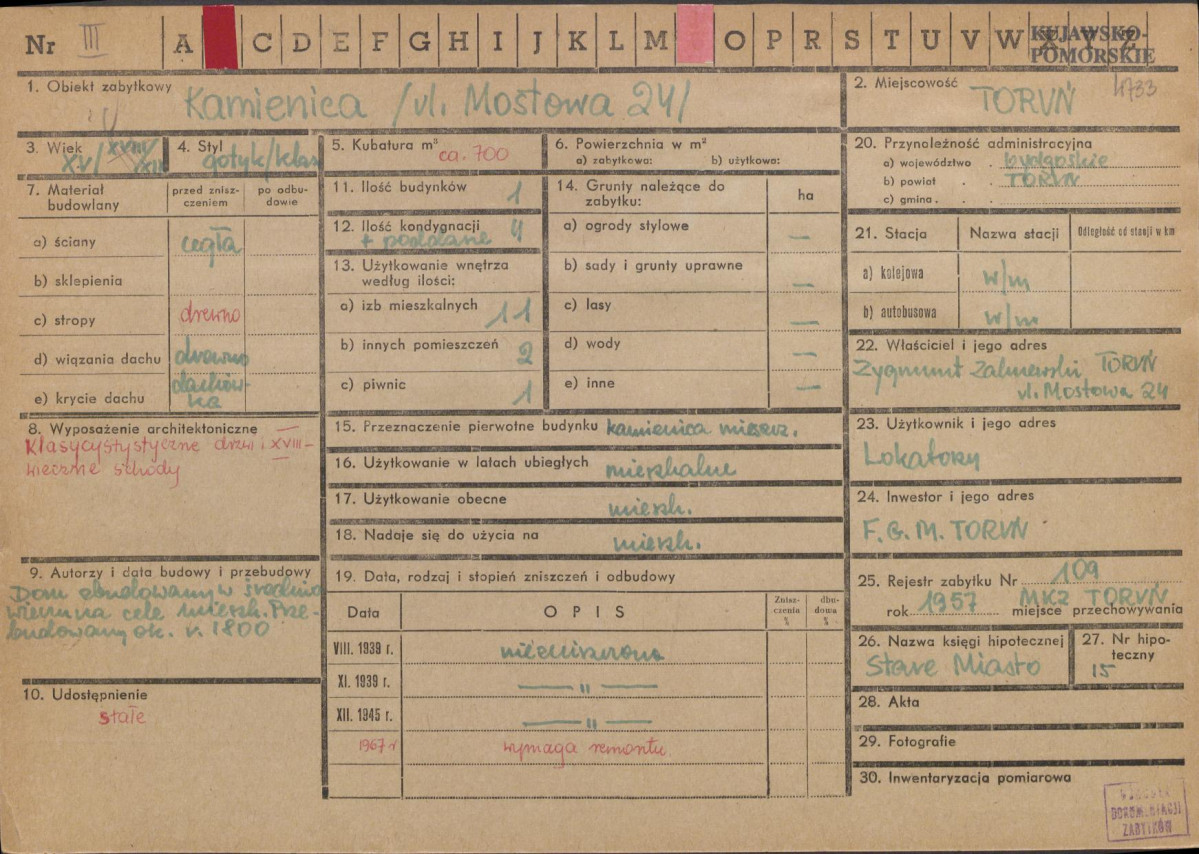 Nr III A C D E F G H I J K L M O P R S T U V W X Y Z
KUJAWSKO-
POMORSKIE
1. Obiekt zabytkowy Kamienica /ul. Mostowa 24/
2. Miejscowość TORUŃ 4733
3. Wiek XV/XVIII/XIX
4. Styl gotyk/klas
5. Kubatura m³ ca. 700
6. Powierzchnia w m²
a) zabytkowa: b) użytkowa:
7. Materiał budowlany
przed zniszczeniem
po odbudowie
a) ściany cegła
b) sklepienia
c) stropy drewno
d) wiązania dachu drewno
e) krycie dachu dachów-
ka
8. Wyposażenie architektoniczne
Klasycystystyczne drzwi i XVIII-
wieczne schody
9. Autorzy i data budowy i przebudowy
Dom zbudowany w średnio
wieczu na cele mieszk. Prze-
budowany ok. r. 1800
10. Udostępnienie
stałe
11. Ilość budynków 1
12. Ilość kondygnacji 4
+ poddasze
13. Użytkowanie wnętrza
według ilości:
a) izb mieszkalnych 11
b) innych pomieszczeń 2
c) piwnic 1
14. Grunty należące do
zabytku:
ha
a) ogrody stylowe —
b) sady i grunty uprawne —
c) lasy —
d) wody —
e) inne —
15. Przeznaczenie pierwotne budynku kamienica mieszcz.
16. Użytkowanie w latach ubiegłych mieszkalne
17. Użytkowanie obecne mieszk.
18. Nadaje się do użycia na mieszk.
19. Data, rodzaj i stopień zniszczeń i odbudowy
Data OPIS Znisz-
czenia
% dbu-
dowa
%
VIII. 1939 r. niezniszczona
XI. 1939 r. — " —
XII. 1945 r. — " —
1967 r wymaga remontu.
20. Przynależność administracyjna
a) województwo . bydgoskie
b) powiat . . TORUŃ
c) gmina . . .
21. Stacja Nazwa stacji Odległość od stacji w km
a) kolejowa w/m
b) autobusowa w/m
22. Właściciel i jego adres
Zygmunt Zalewski TORUŃ
ul. Mostowa 24
23. Użytkownik i jego adres
Lokatorzy
24. Inwestor i jego adres
F.G.M. TORUŃ
25. Rejestr zabytku Nr 109
rok 1957 MKZ TORUŃ
miejsce przechowywania
26. Nazwa księgi hipotecznej
Stare Miasto
27. Nr hipo-
teczny
15
28. Akta
29. Fotografie
30. Inwentaryzacja pomiarowa
OŚRODEK
DOKUMENTACJI
ZABYTKÓW